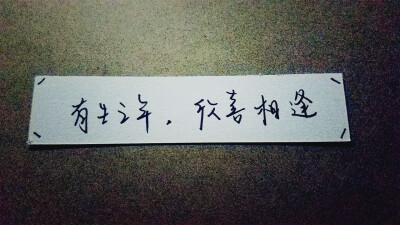 有生之年，欣喜相逢